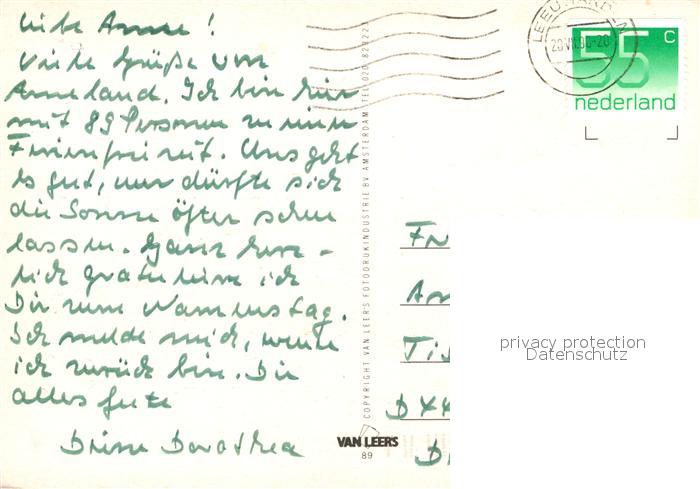 Liebe Anne!
Viele Grüße von
Ameland. Ich bin hier
mit 89 Personen zu einer
Ferienfreizeit. Uns geht
es gut, nur dürfte sich
die Sonne öfter sehen
lassen. Ganz herz-
lich gratuliere ich
Dir zum Namenstag.
Ich melde mich, wenn
ich zurück bin. Dir
alles Gute
Deine Dorothea
COPYRIGHT VAN LEER'S FOTODRUKINDUSTRIE BV AMSTERDAM TEL. 020
VAN LEERS
89
LEEUWARDEN
55 c
nederland
Fr
An
Tis
D44
privacy protection
Datenschutz